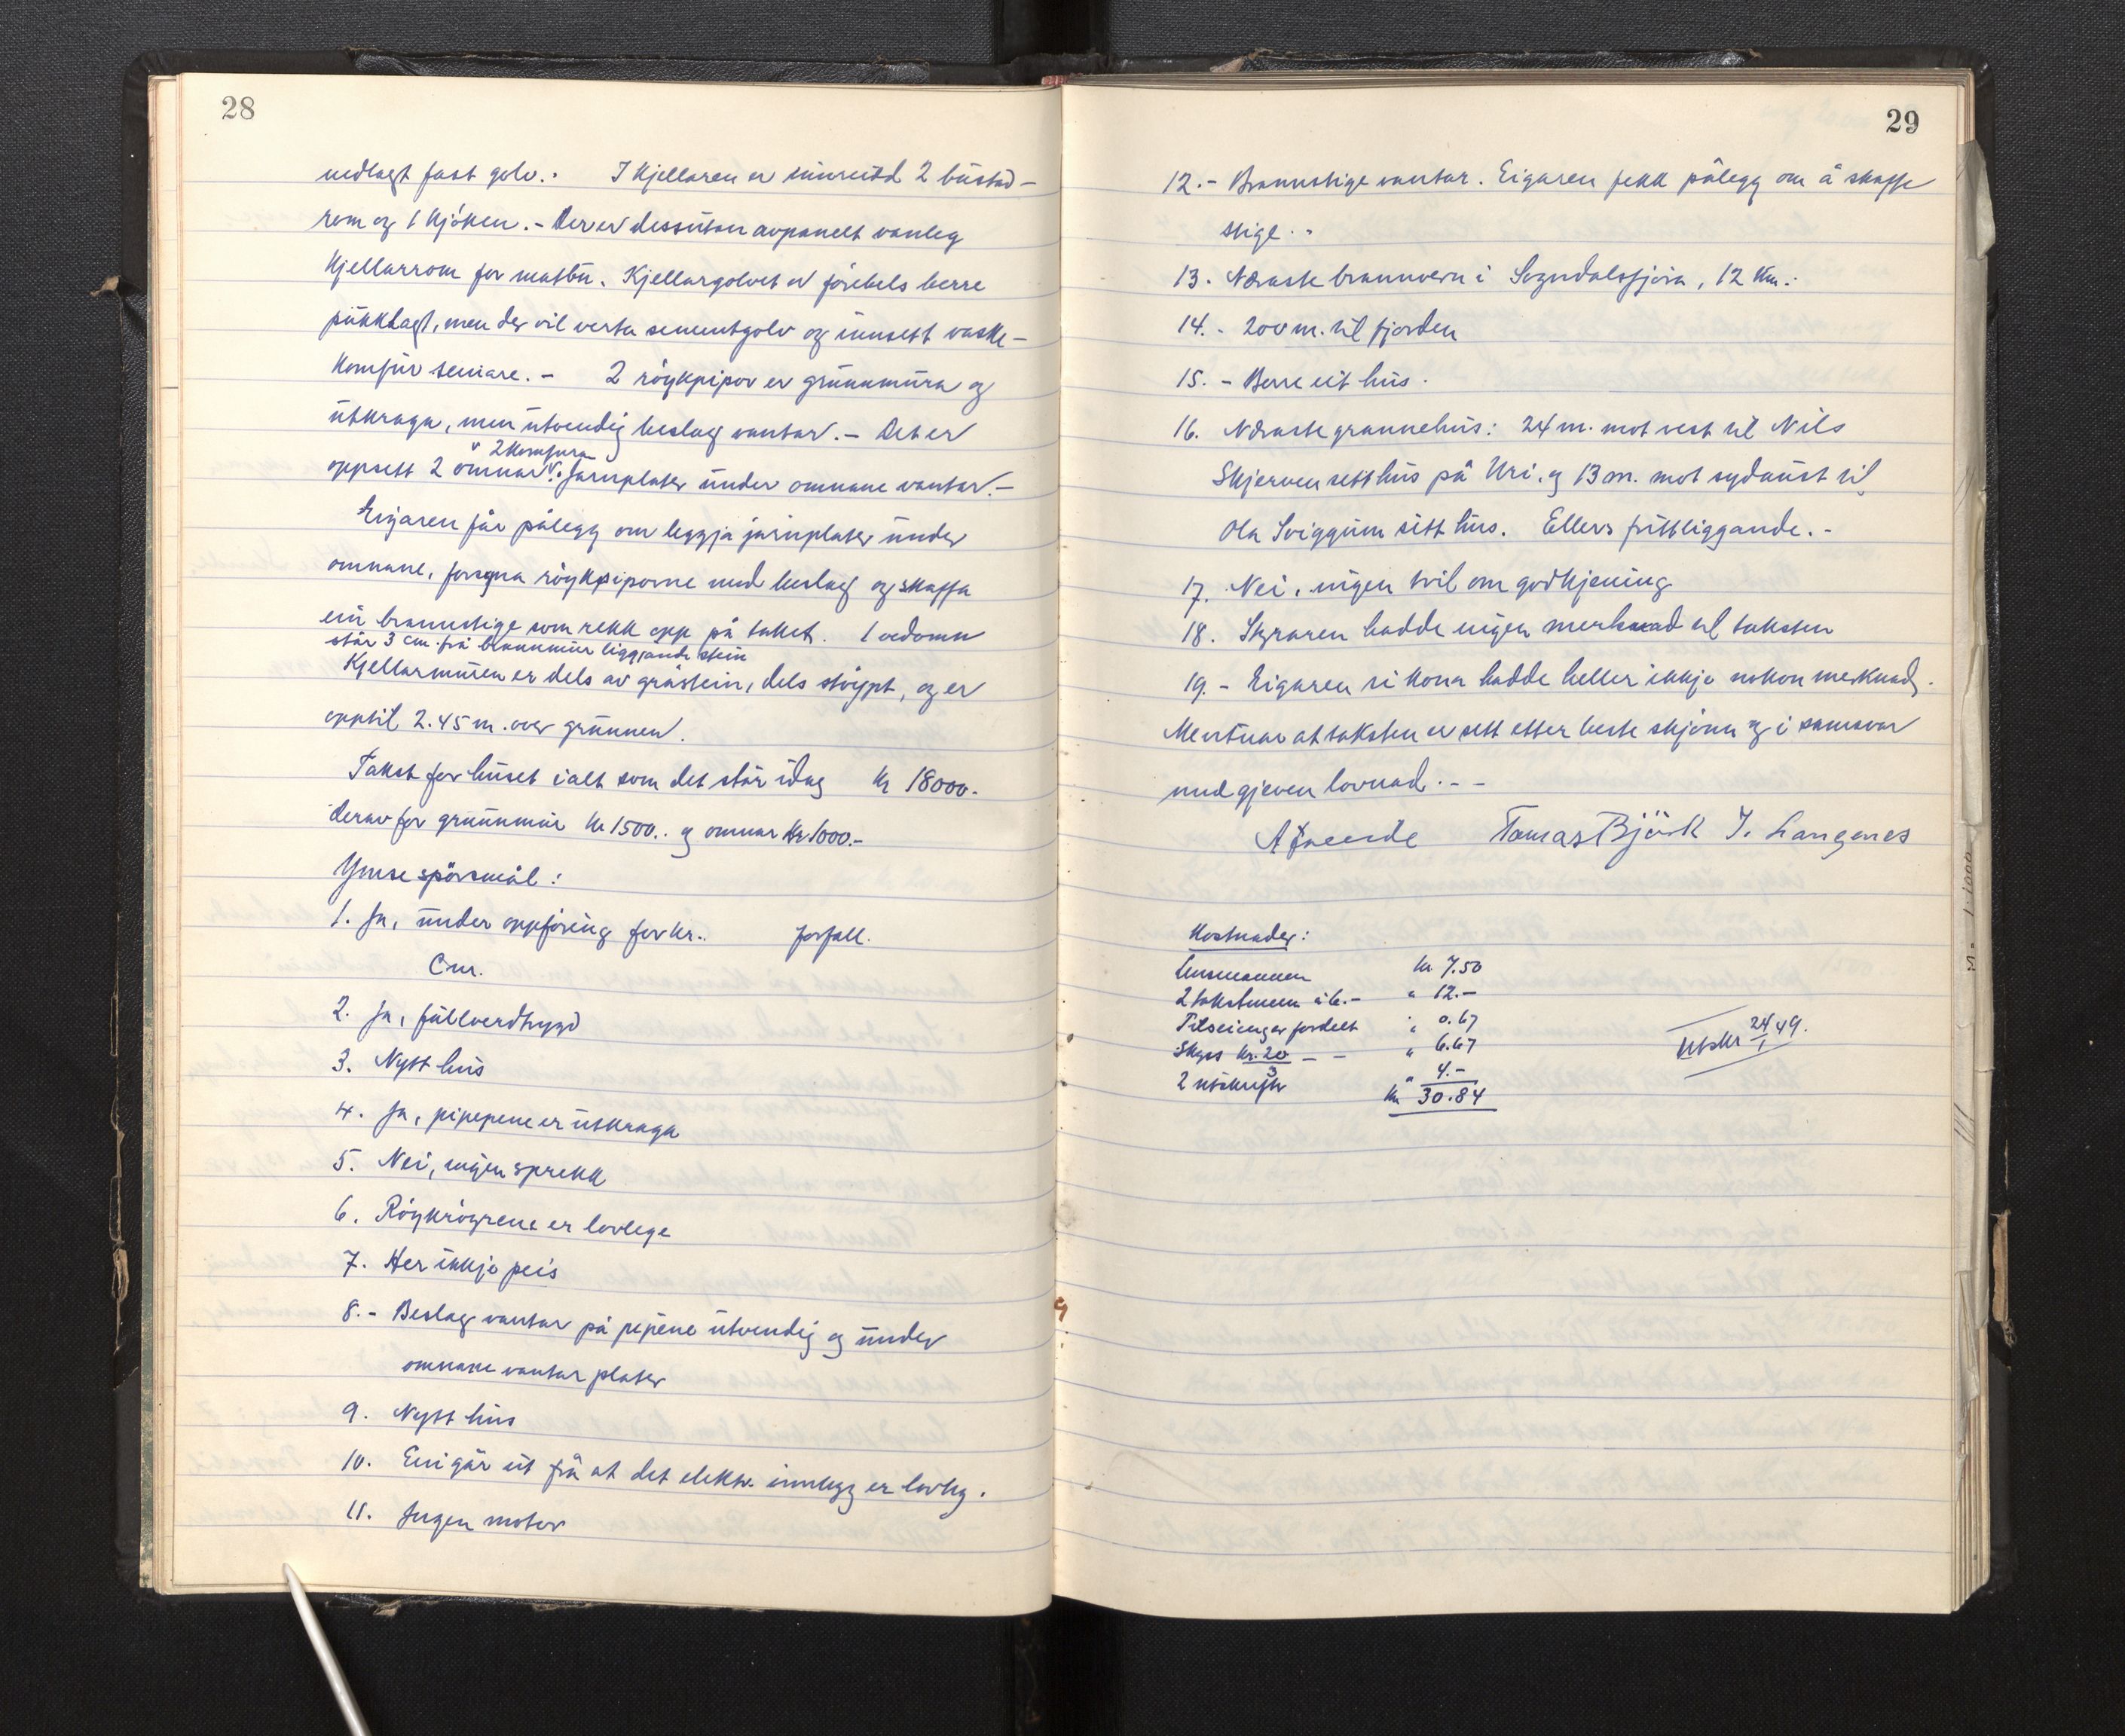 28
nedlagt fast golv.- I kjellaren er innreidd 2 bustad-
rom og 1 kjöken.- Der er dessutan avpanelt vanleg
kjellarrom for matbu. Kjellargolvet er förebels berre
pukklagt, men der vil verta sementgolv og innsett vaske-
komfur seinare.- 2 röykpipor er grunnmura og
utkraga, men utvendig beslag vantar.- Det er
" 2 komfura
oppsett 2 omnar. Jarnplater under omnane vantar.-
Eigaren får pålegg om leggja jarnplater under
omnane, forsyna röykpiporne med beslag og skaffa
ein brannstige som rekk opp på taket. 1 vedomn
står 3 cm. frå brannmur liggjande stein
Kjellarmuren er dels av gråstein, dels stöypt, og er
opptil 2.45 m. over grunnen.
Takst for huset ialt som det står idag kr 18000.-
derav for grunnmur kr 1500.. og omnar kr 1000.-
Ymse spörsmål:
1. Ja, under oppföring for kr.. forfall.
2. Ja, fullverdtrygd
3. Nytt hus
4. Ja, pipepene er utkraga
5. Nei, ingen sprekk
6. Röykröyrene er lovlege
7. Her ikkje peis
8.- Beslag vantar på pipene utvendig og under
omnane vantar plater
9. Nytt hus
10. Ein går ut frå at det elektr. innlegg er lovleg.
11. Ingen motor
29
12.- Brannstige vantar. Eigaren fekk pålegg om å skaffe
stige.-
13. Næraste brannvern i Sogndalsfjöra, 12 km.-
14.- 200 m. til fjorden
15.- Berre eit hus.
16. Næraste grannehus: 24 m. mot vest til Nils
Skjerven sitt hus på Uri. og 13 m. mot sydaust til
Ola Sviggum sitt hus. Ellers frittliggande.-
17. Nei, ingen tvil om godkjening
18. Styraren hadde ingen merknad til taksten
19.- Eigaren si kona hadde heller ikkje nokon merknad.
Mentnar at taksten er sett etter beste skjönn og i samsvar
med gjeven lovnad.--
Tomas Björk J. Langenes
Kostnader:
Lensmannen kr 7.50
2 takstmenn à 6.- " 12.-
fordelt " 0.67
Skyss kr. 20 - - " 6.67
3
2 utskrifter " 4.-
kr 30.84
Utskr 24/1 49.